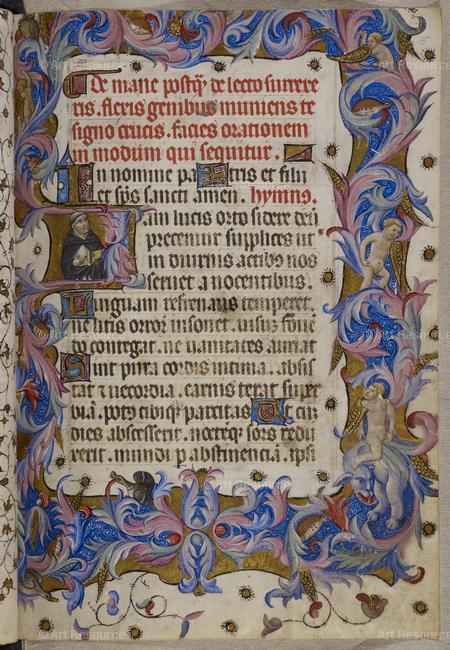 De mane postq̃ de lecto surrexe
ris. flexis genibus muniens te
signo crucis. facies orationem
in modum qui sequitur.
In nomine patris et filii
et sp̃s sancti amen. hymns.
Iam lucis orto sidere deũ
precemur supplices ut
in diurnis actibs nos
seruet a nocentibus.
Linguam refrenans temperet.
ne litis orror insonet. uisum
do contegat. ne uanitates auriat
Sint pura cordis intima. absis
tat z uecordia. carnis terat super
biã. pots cibiq̃ parcitas Ut cũ
dies abscesserit. noctemq̃ sors redu
xerit. mundi p abstinenciã. ipsi
© Art Resource
© Art Resource
© Art Resource
© Art Resource